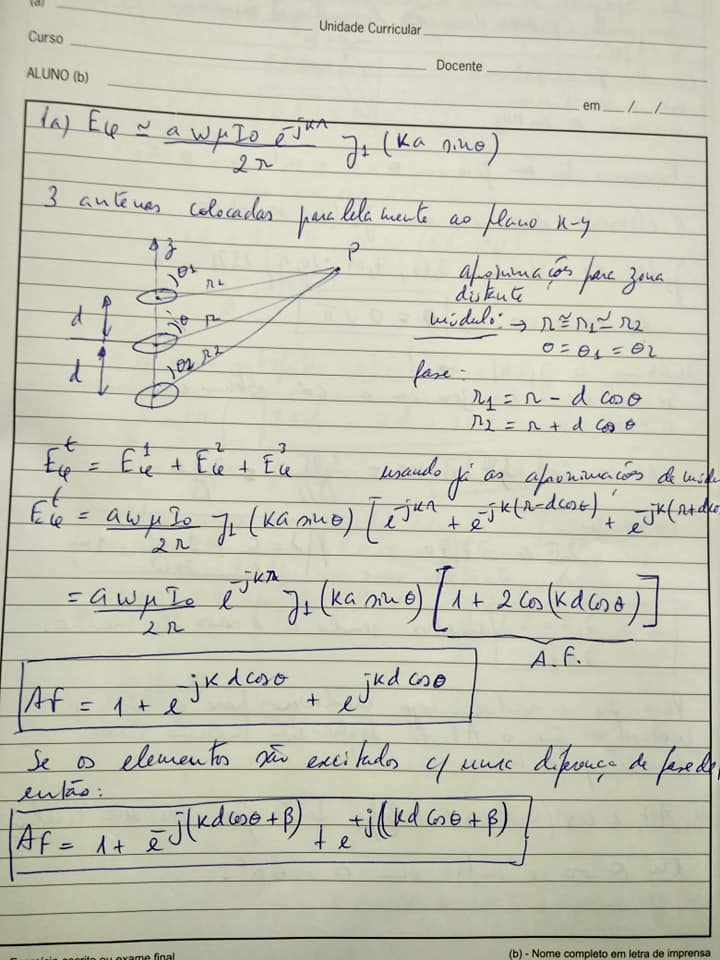 (a)
Unidade Curricular
Curso
Docente
ALUNO (b)
em / /
1a) Eφ ≃ a ω μ I0 e^-jkr / 2r J1 (ka sinθ)
3 antenas colocadas paralelamente ao plano x-y
z
P
θ1
r1
θ
r
θ2
r2
d
d
aproximações para zona
distante
módulo: → r ≅ r1 ≃ r2
θ = θ1 = θ2
fase:
r1 = r - d cosθ
r2 = r + d cosθ
Eφ^t = Eφ^1 + Eφ^2 + Eφ^3 usando já as aproximações de
Eφ^t = a ω μ I0 / 2r J1 (ka sinθ) [ e^-jkr + e^-jk(r-dcosθ) + e^-jk(r+dco
= a ω μ I0 / 2r e^-jkr J1 (ka sinθ) [ 1 + 2 cos(kd cosθ) ]
A.F.
AF = 1 + e^-jkd cosθ + e^jkd cosθ
Se os elementos são excitados c/ uma diferença de fase de
então:
AF = 1 + e^-j(kd cosθ + β) + e^+j(kd cosθ + β)
ou exame final
(b) - Nome completo em letra de imprensa